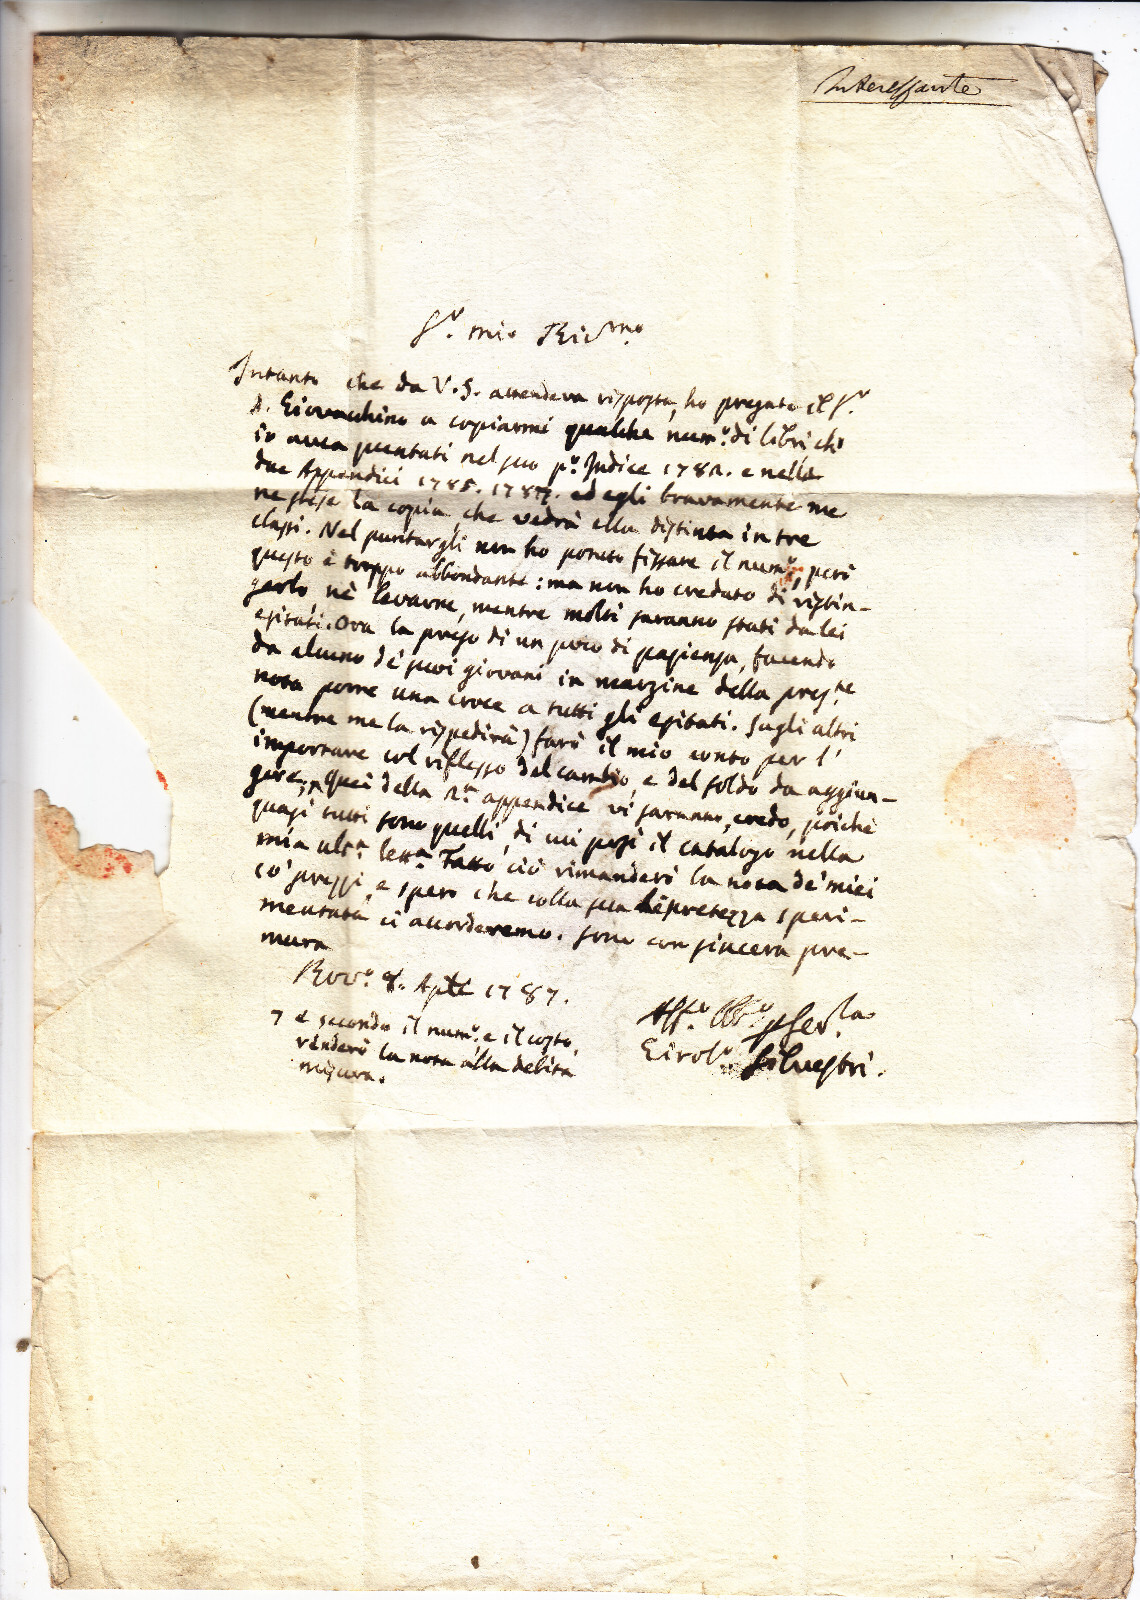 Interessante
Sr. mio Rivmo.
Intanto che da V.S. attendeva risposta, ho pregato il Sr.
D. Giovacchino a copiarmi qualche numo. di libri ch'
io avea puntati nel suo po. Indice 1782. e nelle
due Appendici 1785. 1787. ed egli bravamente me
ne stese la copia, che vedrà ella distinta in tre
classi. Nel puntargli non ho potuto fissare il numo, però
questo è troppo abbondante: ma non ho creduto di ristin-
gerlo nè levarne, mentre molti saranno stati da lei
esitati. Ora la prego di un poco di pazienza, facendo
da alcuno de' suoi giovani in margine della preste
nota porre una croce a tutti gli esitati. Sugli altri
(mentre me la rispedirà) farò il mio conto per l'
importare col riflesso del cambio, e del soldo da aggiun-
gere. Quei della 2a. appendice vi saranno, credo, poichè
quasi tutti sono quelli, di cui posi il catalogo nella
mia ulta. letta. Fatto ciò rimanderò la nota de' miei
co' prezzi, e spero che colla sua discretezza speri-
mentata ci accorderemo. Sono con sincera pre-
mura
Rovo. 8. Aple 1787.
7 e secondo il numo, e il costo,
renderò la nota alla debita
misura.
Affo. Obbo. Serva.
Girolo. Silvestri.